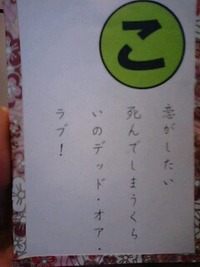 こ
恋がしたい
死んでしまうくら
いのデッド・オア・
ラブ！